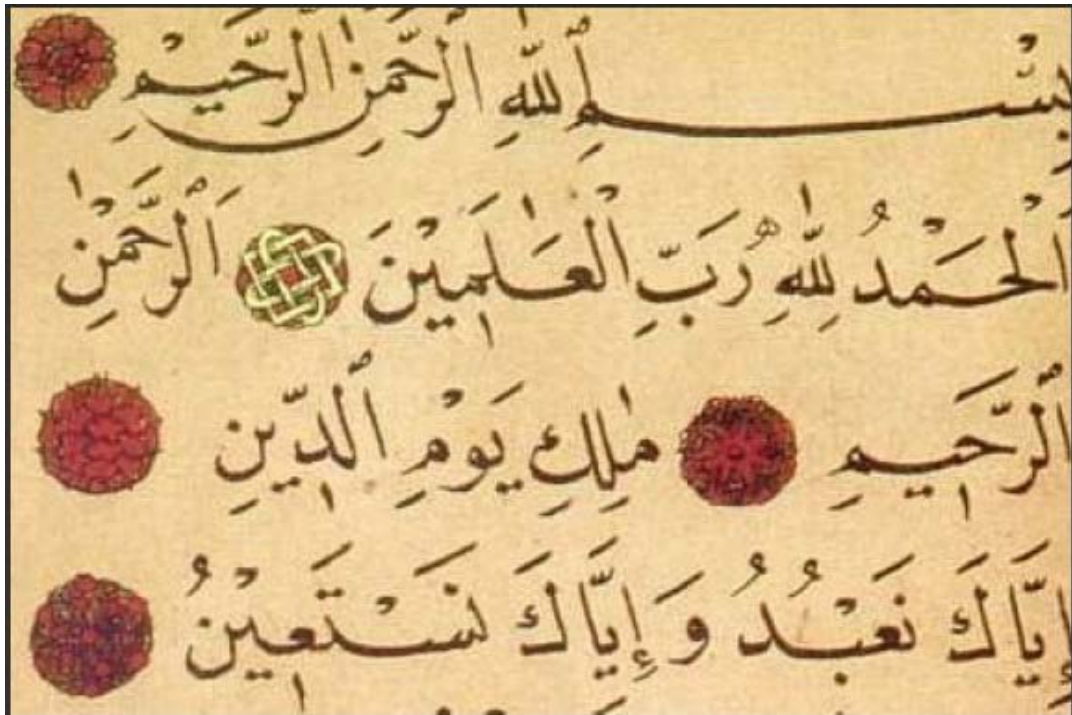 بِسْمِ ٱللّٰهِ ٱلرَّحْمٰنِ ٱلرَّحِيْمِ
اَلْحَمْدُ لِلّٰهِ رَبِّ ٱلْعٰلَمِيْنَ اَلرَّحْمٰنِ
ٱلرَّحِيْمِ مٰلِكِ يَوْمِ ٱلدِّيْنِ
إِيَّاكَ نَعْبُدُ وَإِيَّاكَ نَسْتَعِيْنُ